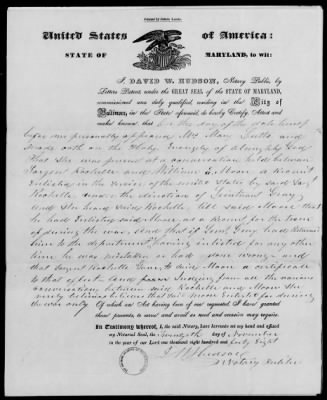 United States of America:
STATE OF MARYLAND, to wit:
I, DAVID W. HUDSON, Notary Public, by
Letters Patent under the GREAT SEAL of the STATE OF MARYLAND,
commissioned and duly qualified, residing in the City of
Baltimore, in the State aforesaid, do hereby Certify, Attest and
make known that on the day of the date hereof
before me personally appeared Mrs Mary and
made oath on the Holy Evangely of Almighty God
That she was present at a conversation held between
Sargent Rochelle and William Moore a Recruit
Enlisted in the Service of the United States by said Sargt
Rochelle under the direction of Lieutenant Gray,
and she heard said Rochelle tell said Moore that
he had Enlisted said Moore, as a Recruit for the term
of during the war, and that if Lieut Gray had Returned
him to the department, as having enlisted for any other
time he was mistaken or had done wrong and
that Sargent Rochelle gave to said Moore a certificate
to that effect and from the various
conversations between said Rochelle and Moore she
verily believes that said Moore Enlisted for during
the war only Of which an Act having been of me requested, I have granted
these presents, to serve and avail as need and occasion may require.
In Testimony whereof, I, the said Notary, have hereunto set my hand and affixed
my Notarial Seal, the Twentyth day of November
in the year of our Lord one thousand eight hundred and forty Eight
D W Hudson
Notary Public